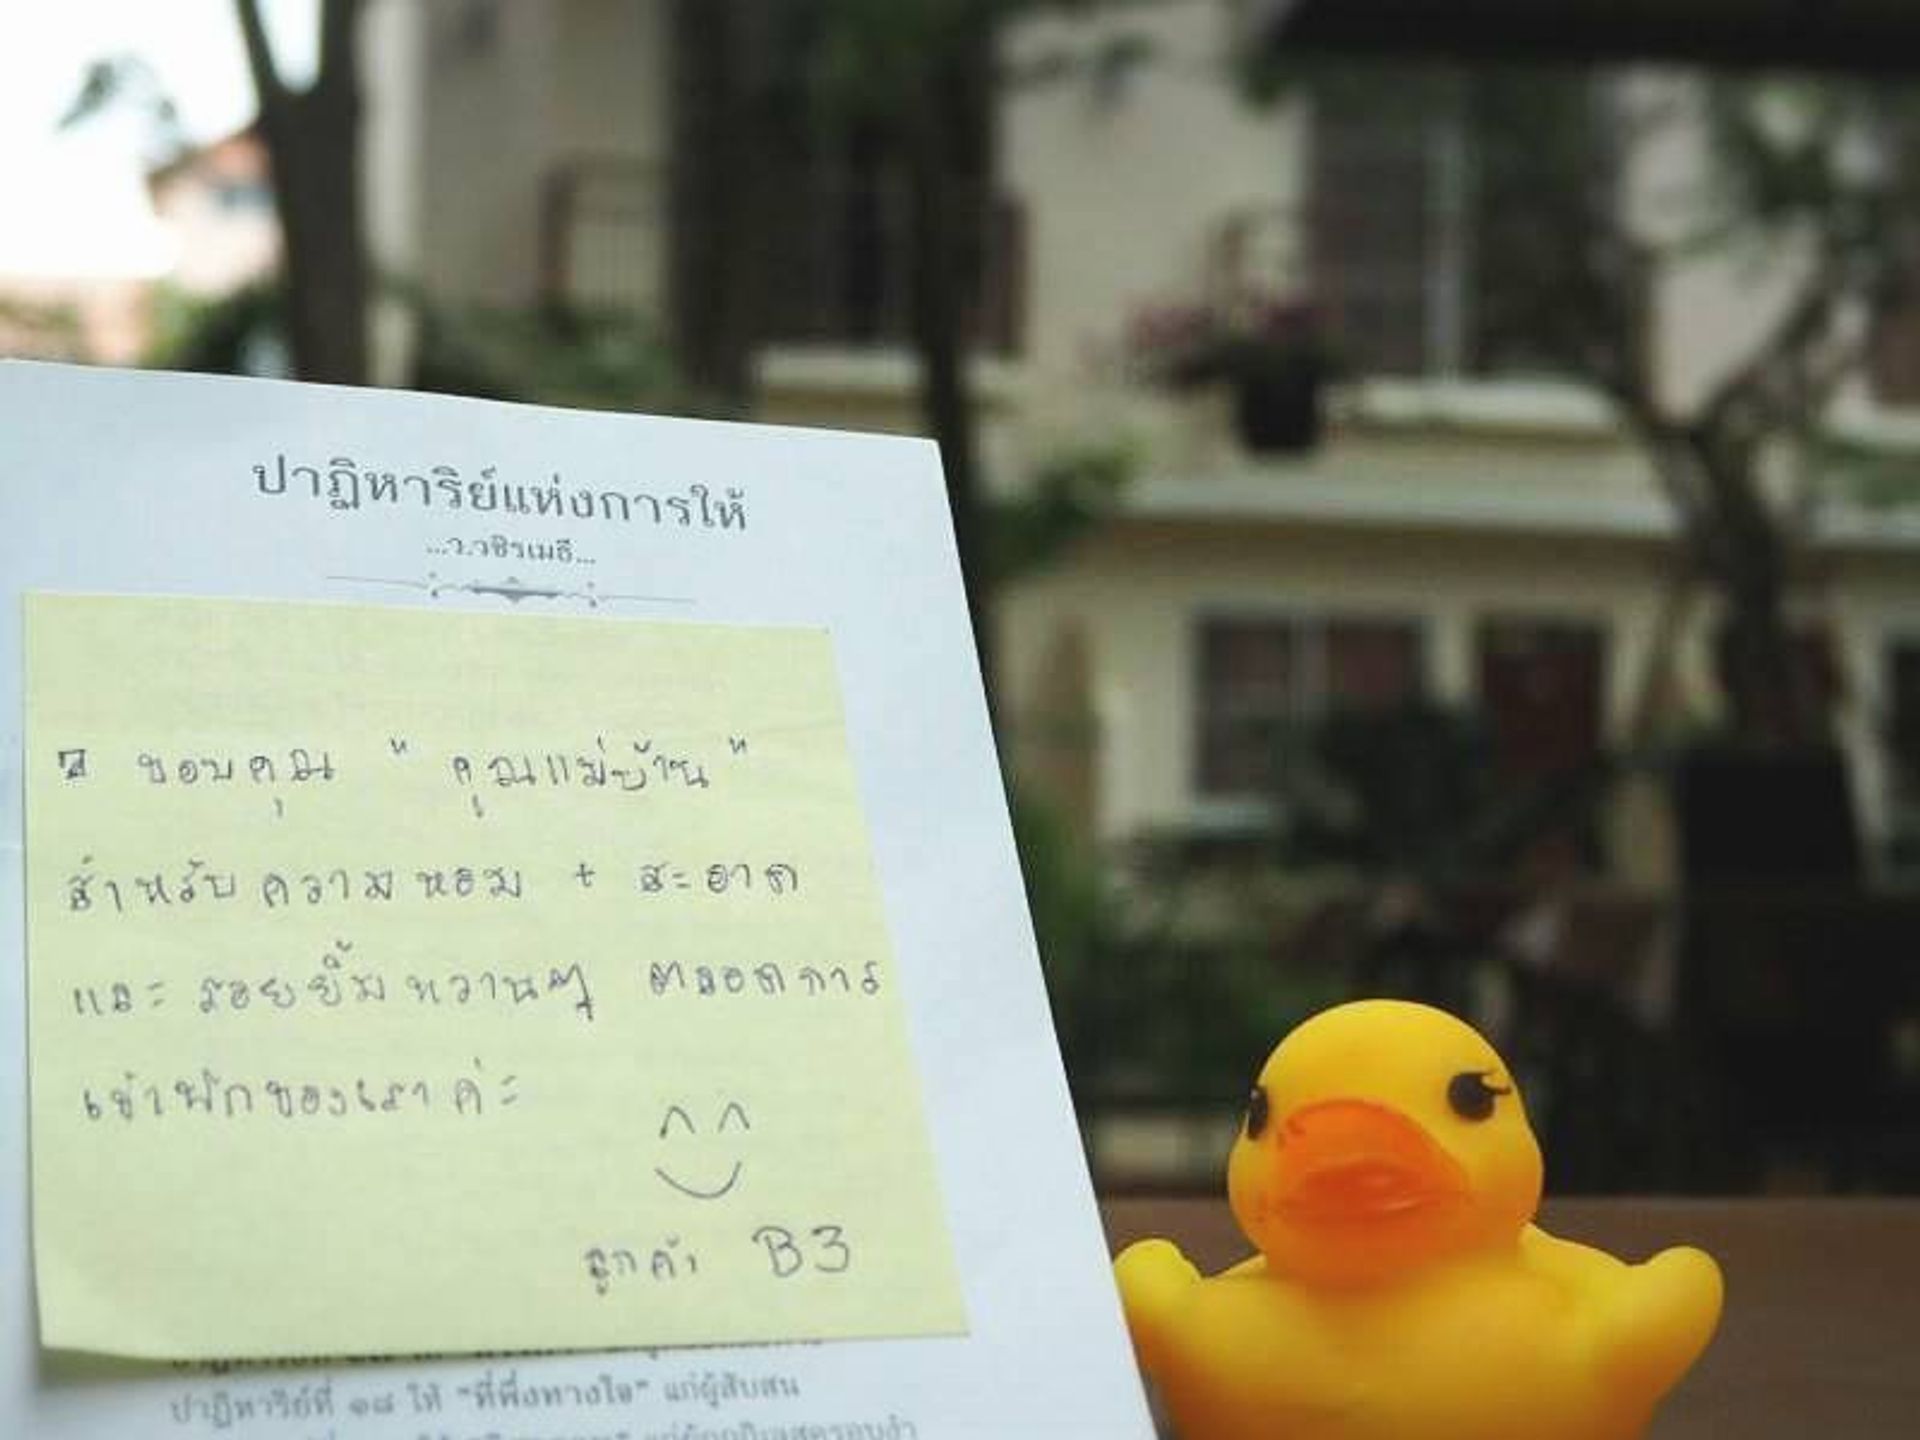 ปาฏิหาริย์แห่งการให้
...ว.วชิรเมธี...
ขอบคุณ "คุณแม่บ้าน"
สำหรับความหอม + สะอาด
และรอยยิ้มหวานๆ ตลอดการ
เข้าพักของเราค่ะ
ลูกค้า B3
ปาฏิหาริย์ที่ ๑๘ ให้ "ที่พึ่งทางใจ" แก่ผู้สับสน